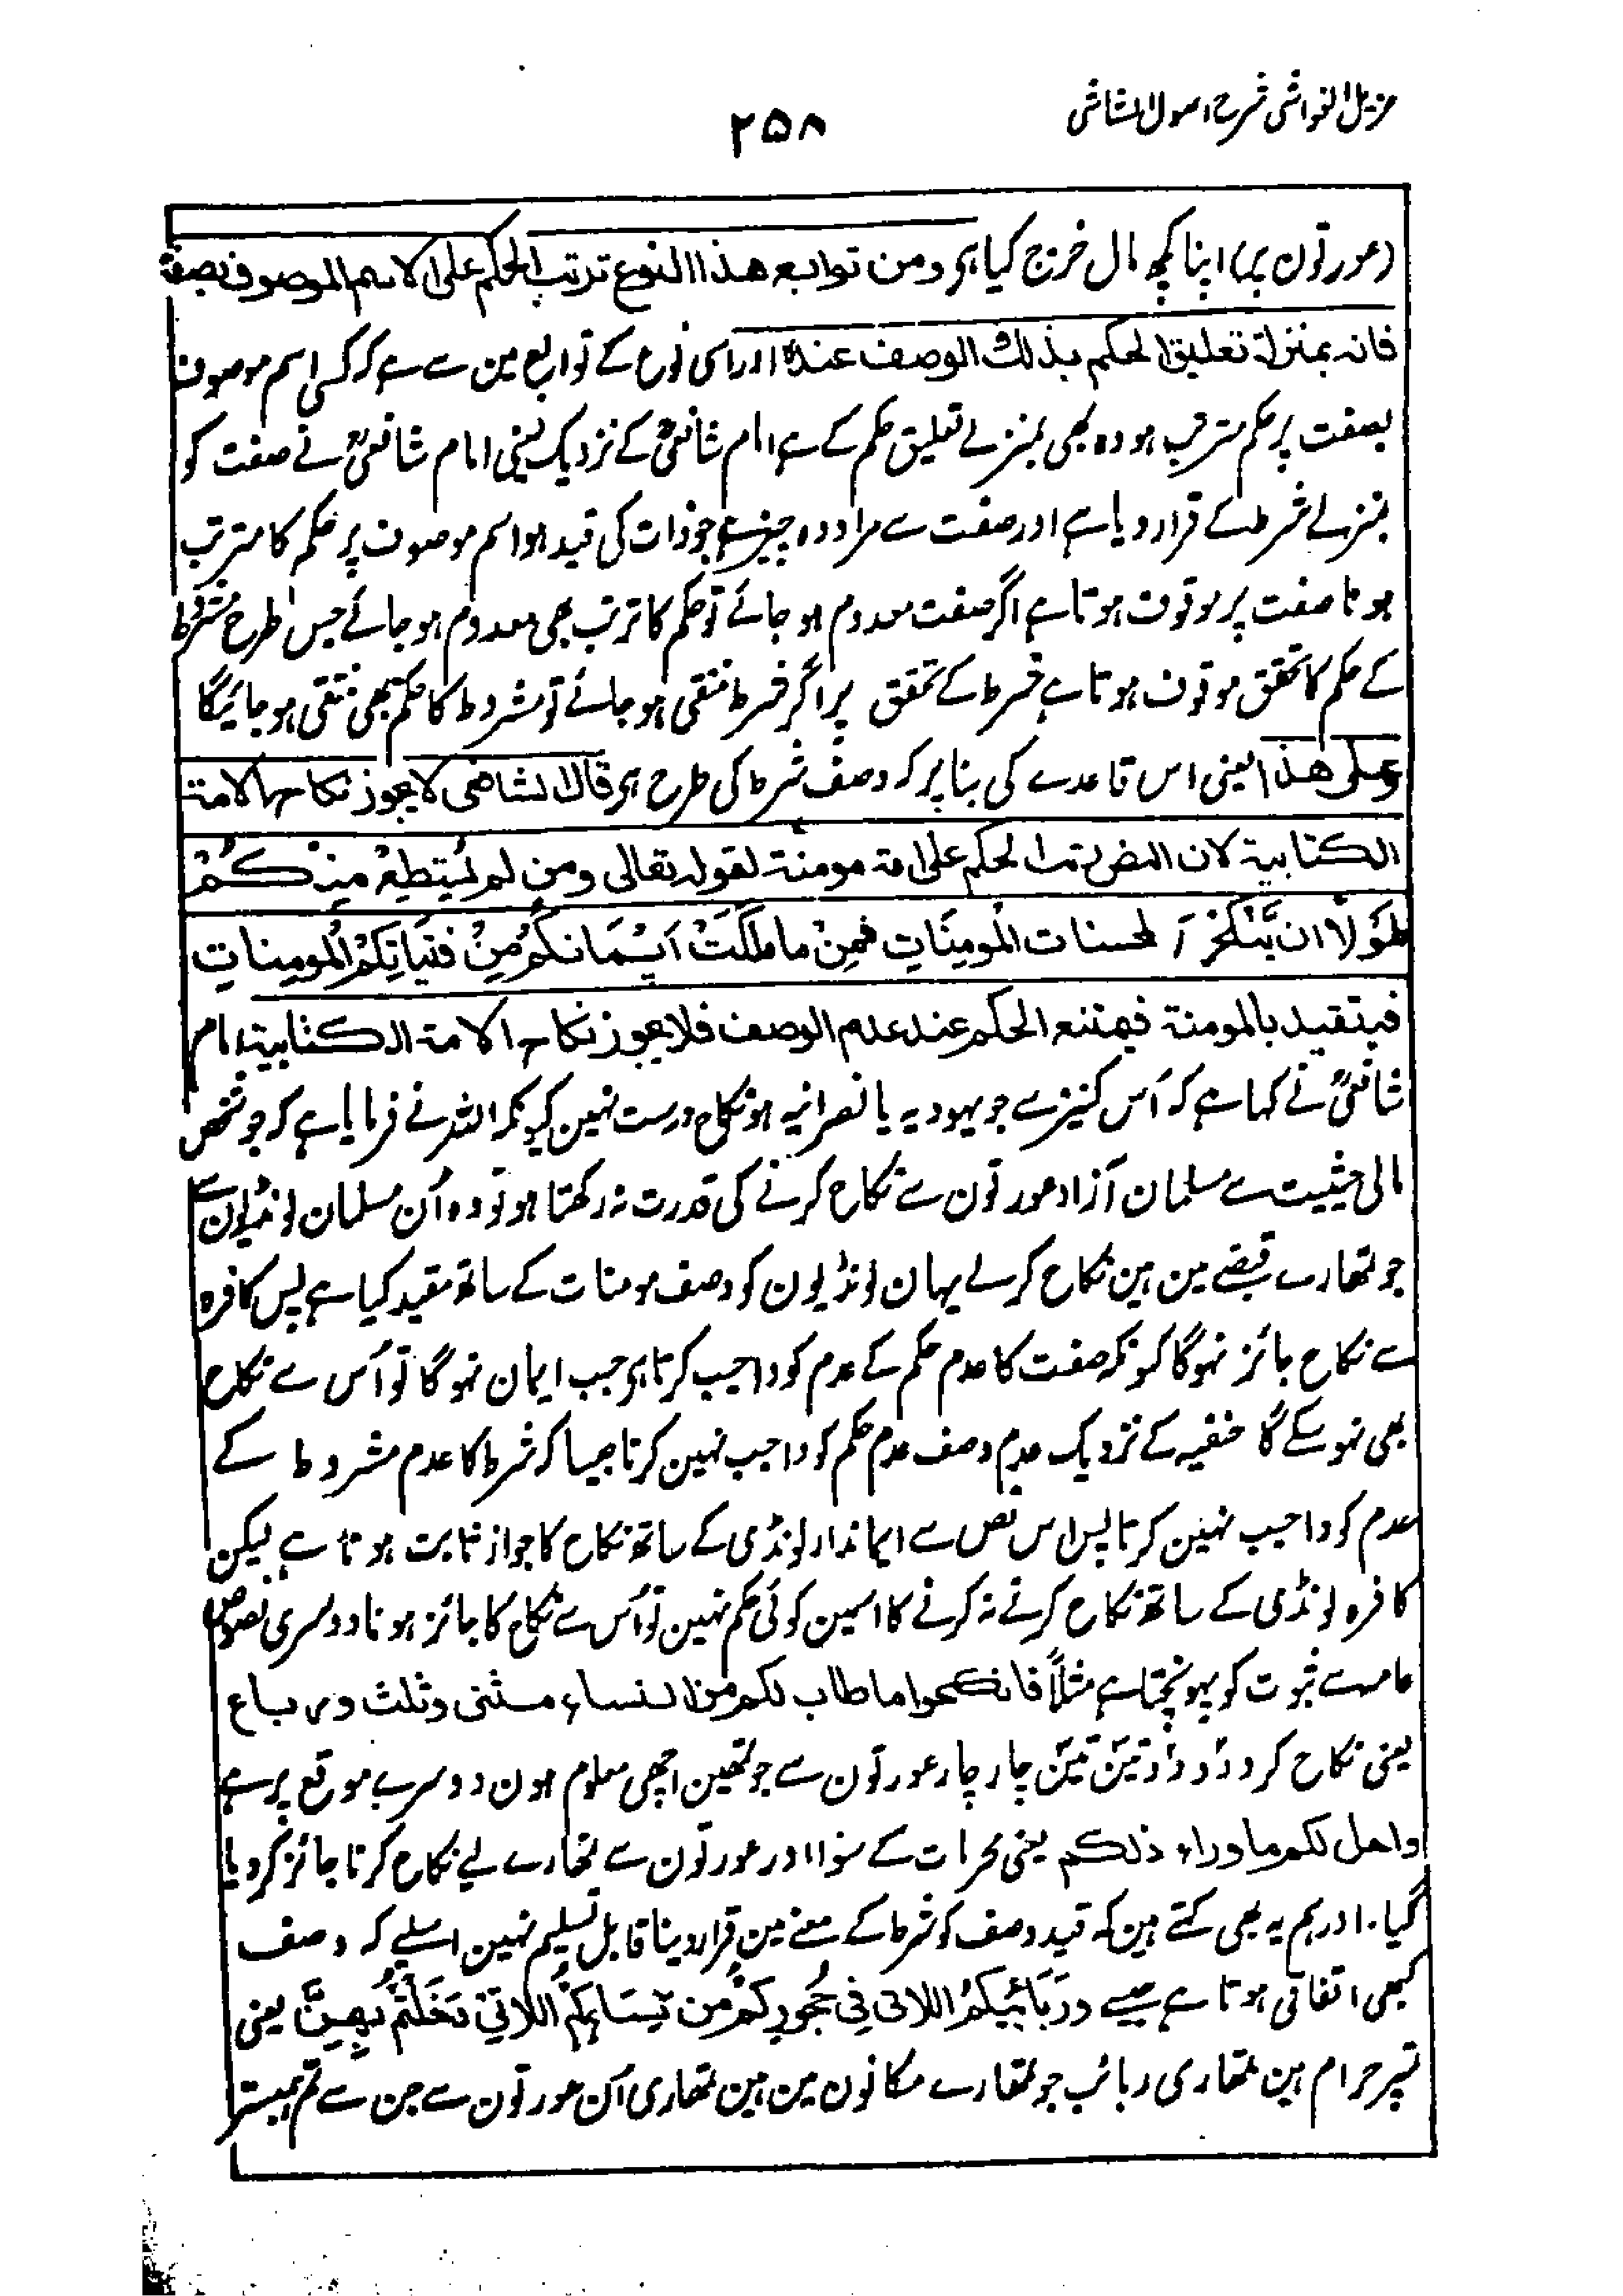 مزیل الغواشی شرح اصول الشاشی
۲۵۸
(عورتون پر) اپنا کچھ مال خرچ کیا ہر ومن توابع هذا النوع ترتب الحکم علی الاسم الموصوف بصفة
فانہ بمنزلۃ تعلیق الحکم بذلك الوصف عندہ اور اسی نوع کے توابع مین سے ہے کہ کسی اسم موصوف
بصفت پر حکم مترتب ہو وہ بھی بمنزلے تعلیق حکم کے ہے امام شافعیؒ کے نزدیک یعنی امام شافعیؒ نے صفت کو
بمنزلے شرط کے قرار دیا ہے اور صفت سے مراد وہ چیز ہے جو ذات کی قید ہو اسم موصوف پر حکم کا مترتب
ہونا صفت پر موقوف ہوتا ہے اگر صفت معدوم ہو جائے تو حکم کا ترتب بھی معدوم ہو جائے جس طرح مشروط
کے حکم کا تحقق موقوف ہوتا ہے شرط کے تحقق پر اگر شرط منتفی ہو جائے تو مشروط کا حکم بھی منتفی ہو جائیگا
وعلی هذا یعنی اس قاعدے کی بنا پر کہ وصف شرط کی طرح ہر قال الشافعی لا یجوز نکاح الامۃ
الکتابیۃ لان النص رتب الحکم علی امۃ مومنۃ لقولہ تعالی ومن لم یَستطِعْ مِنْکُمْ
طَوْلًا ان یَّنْکِحَ المحسنات المُومِنَاتِ فمِنْ ما مَلَکَتْ اَیْمَانکُمْ مِنْ فَتَیَاتِکُمْ المُومِناتِ
فیتقید بالمومنۃ فیمتنع الحکم عند عدم الوصف فلا یجوز نکاح الامۃ الکتابیۃ امام
شافعیؒ نے کہا ہے کہ اُس کنیز سے جو یہودیہ یا نصرانیہ ہو نکاح درست نہین کیونکہ اللہ نے فرمایا ہے کہ جو شخص
مالی حیثیت سے مسلمان آزاد عورتون سے نکاح کرنے کی قدرت نہ رکھتا ہو تو وہ اُن مسلمان لونڈیون سے
جو تمھارے قبضے مین ہین نکاح کرلے یہان لونڈیون کو وصف مومنات کے ساتھ مقید کیا ہے پس کافرہ
سے نکاح جائز نہوگا کیونکہ صفت کا عدم حکم کے عدم کو واجب کرتا ہر جب ایمان نہوگا تو اُس سے نکاح
بھی نہوسکے گا حنفیہ کے نزدیک عدم وصف عدم حکم کو واجب نہین کرتا جیسا کہ شرط کا عدم مشروط کے
عدم کو واجب نہین کرتا پس اس نص سے ایماندار لونڈی کے ساتھ نکاح کا جواز ثابت ہوتا ہے لیکن
کافرہ لونڈی کے ساتھ نکاح کرنے نہ کرنے کا اسمین کوئی حکم نہین تو اُس سے نکاح کا جائز ہونا دوسری نصوص
عامہ سے ثبوت کو پہونچتا ہے مثلًا فانکحوا ما طاب لکم من النساء مثنی وثلث ورباع
یعنی نکاح کرو دو دو تین تین چار چار عورتون سے جو تمھین اچھی معلوم ہون دوسرے موقع پر ہے
واحل لکم ما وراء ذلکم یعنی محرمات کے سوا اور عورتون سے تمھارے لیے نکاح کرنا جائز کردیا
گیا. اور ہم یہ بھی کہتے ہین کہ قید وصف کو شرط کے معنے مین قرار دینا قابل تسلیم نہین اسلیے کہ وصف
کبھی اتفاقی ہوتا ہے جیسے ورَبَائِبُکُمُ اللاتی فِی حُجُورِکُمْ مِن نِسَائِکُمْ اللَاتِیْ دَخَلْتُمْ بِهِنَّ یعنی
تمپر حرام ہین تمھاری ربائب جو تمھارے مکانون مین ہین تمھاری اُن عورتون سے جن سے تم ہمبستر